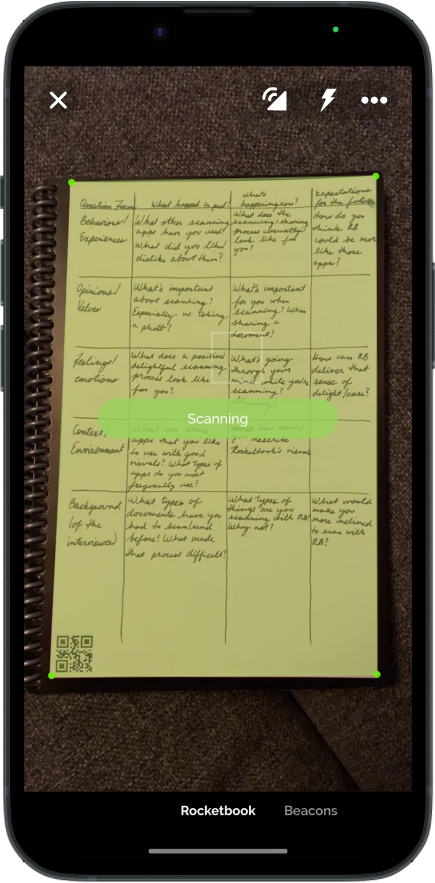 Question Focus What happened in past? What's happening now? Expectations for the future
Behaviors/
Experiences
What other scanning
apps have you used?
What did you like/
dislike about them?
What does the
scanning/sharing
process currently
look like for
you?
How do you
think RB
could be more
like those
apps?
Opinions/
Values
What's important
about scanning?
Especially vs. taking
a photo?
What's important
for you when
scanning? When
sharing a
document?
Feelings/
emotions
What does a positive/
delightful scanning
process look like
for you?
What's going
through your
mind while you're
scanning?
sharing?
How can RB
deliver that
sense of
delight/ease?
Scanning
Context/
Environment
What are some
apps that you like
to use with good
visuals? What types of
apps do you most
frequently use?
How would
you describe
Rocketbook's visual
Background
(of the
interviewee)
What types of
documents have you
had to scan/send
before? What made
that process difficult?
What types of
things are you
scanning with RB?
Why not?
What would
make you
more inclined
to scan with
RB?
Rocketbook Beacons